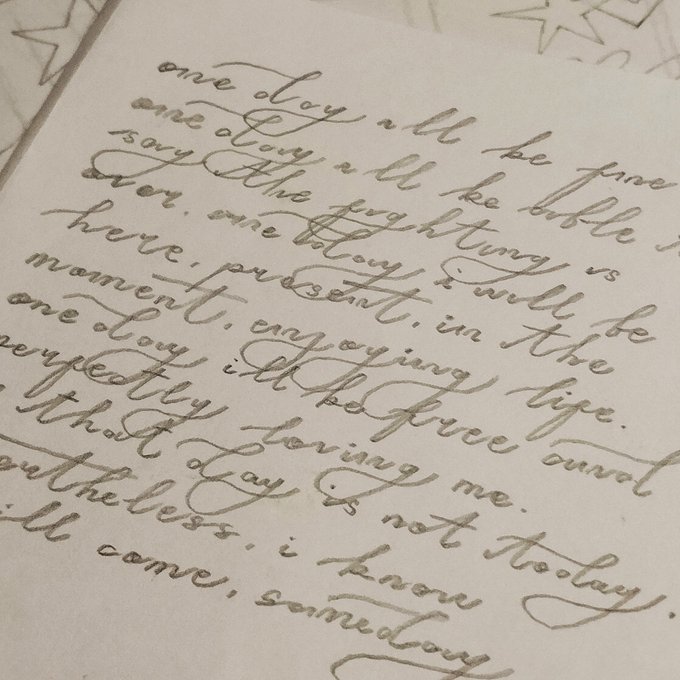 one day i'll be fine
one day i'll be able
say the fighting is
over. one day i will be
here, present, in the
moment, enjoying life.
one day i'll be free and
perfectly loving me.
that day is not today.
ontheless, i know
ill come, someday